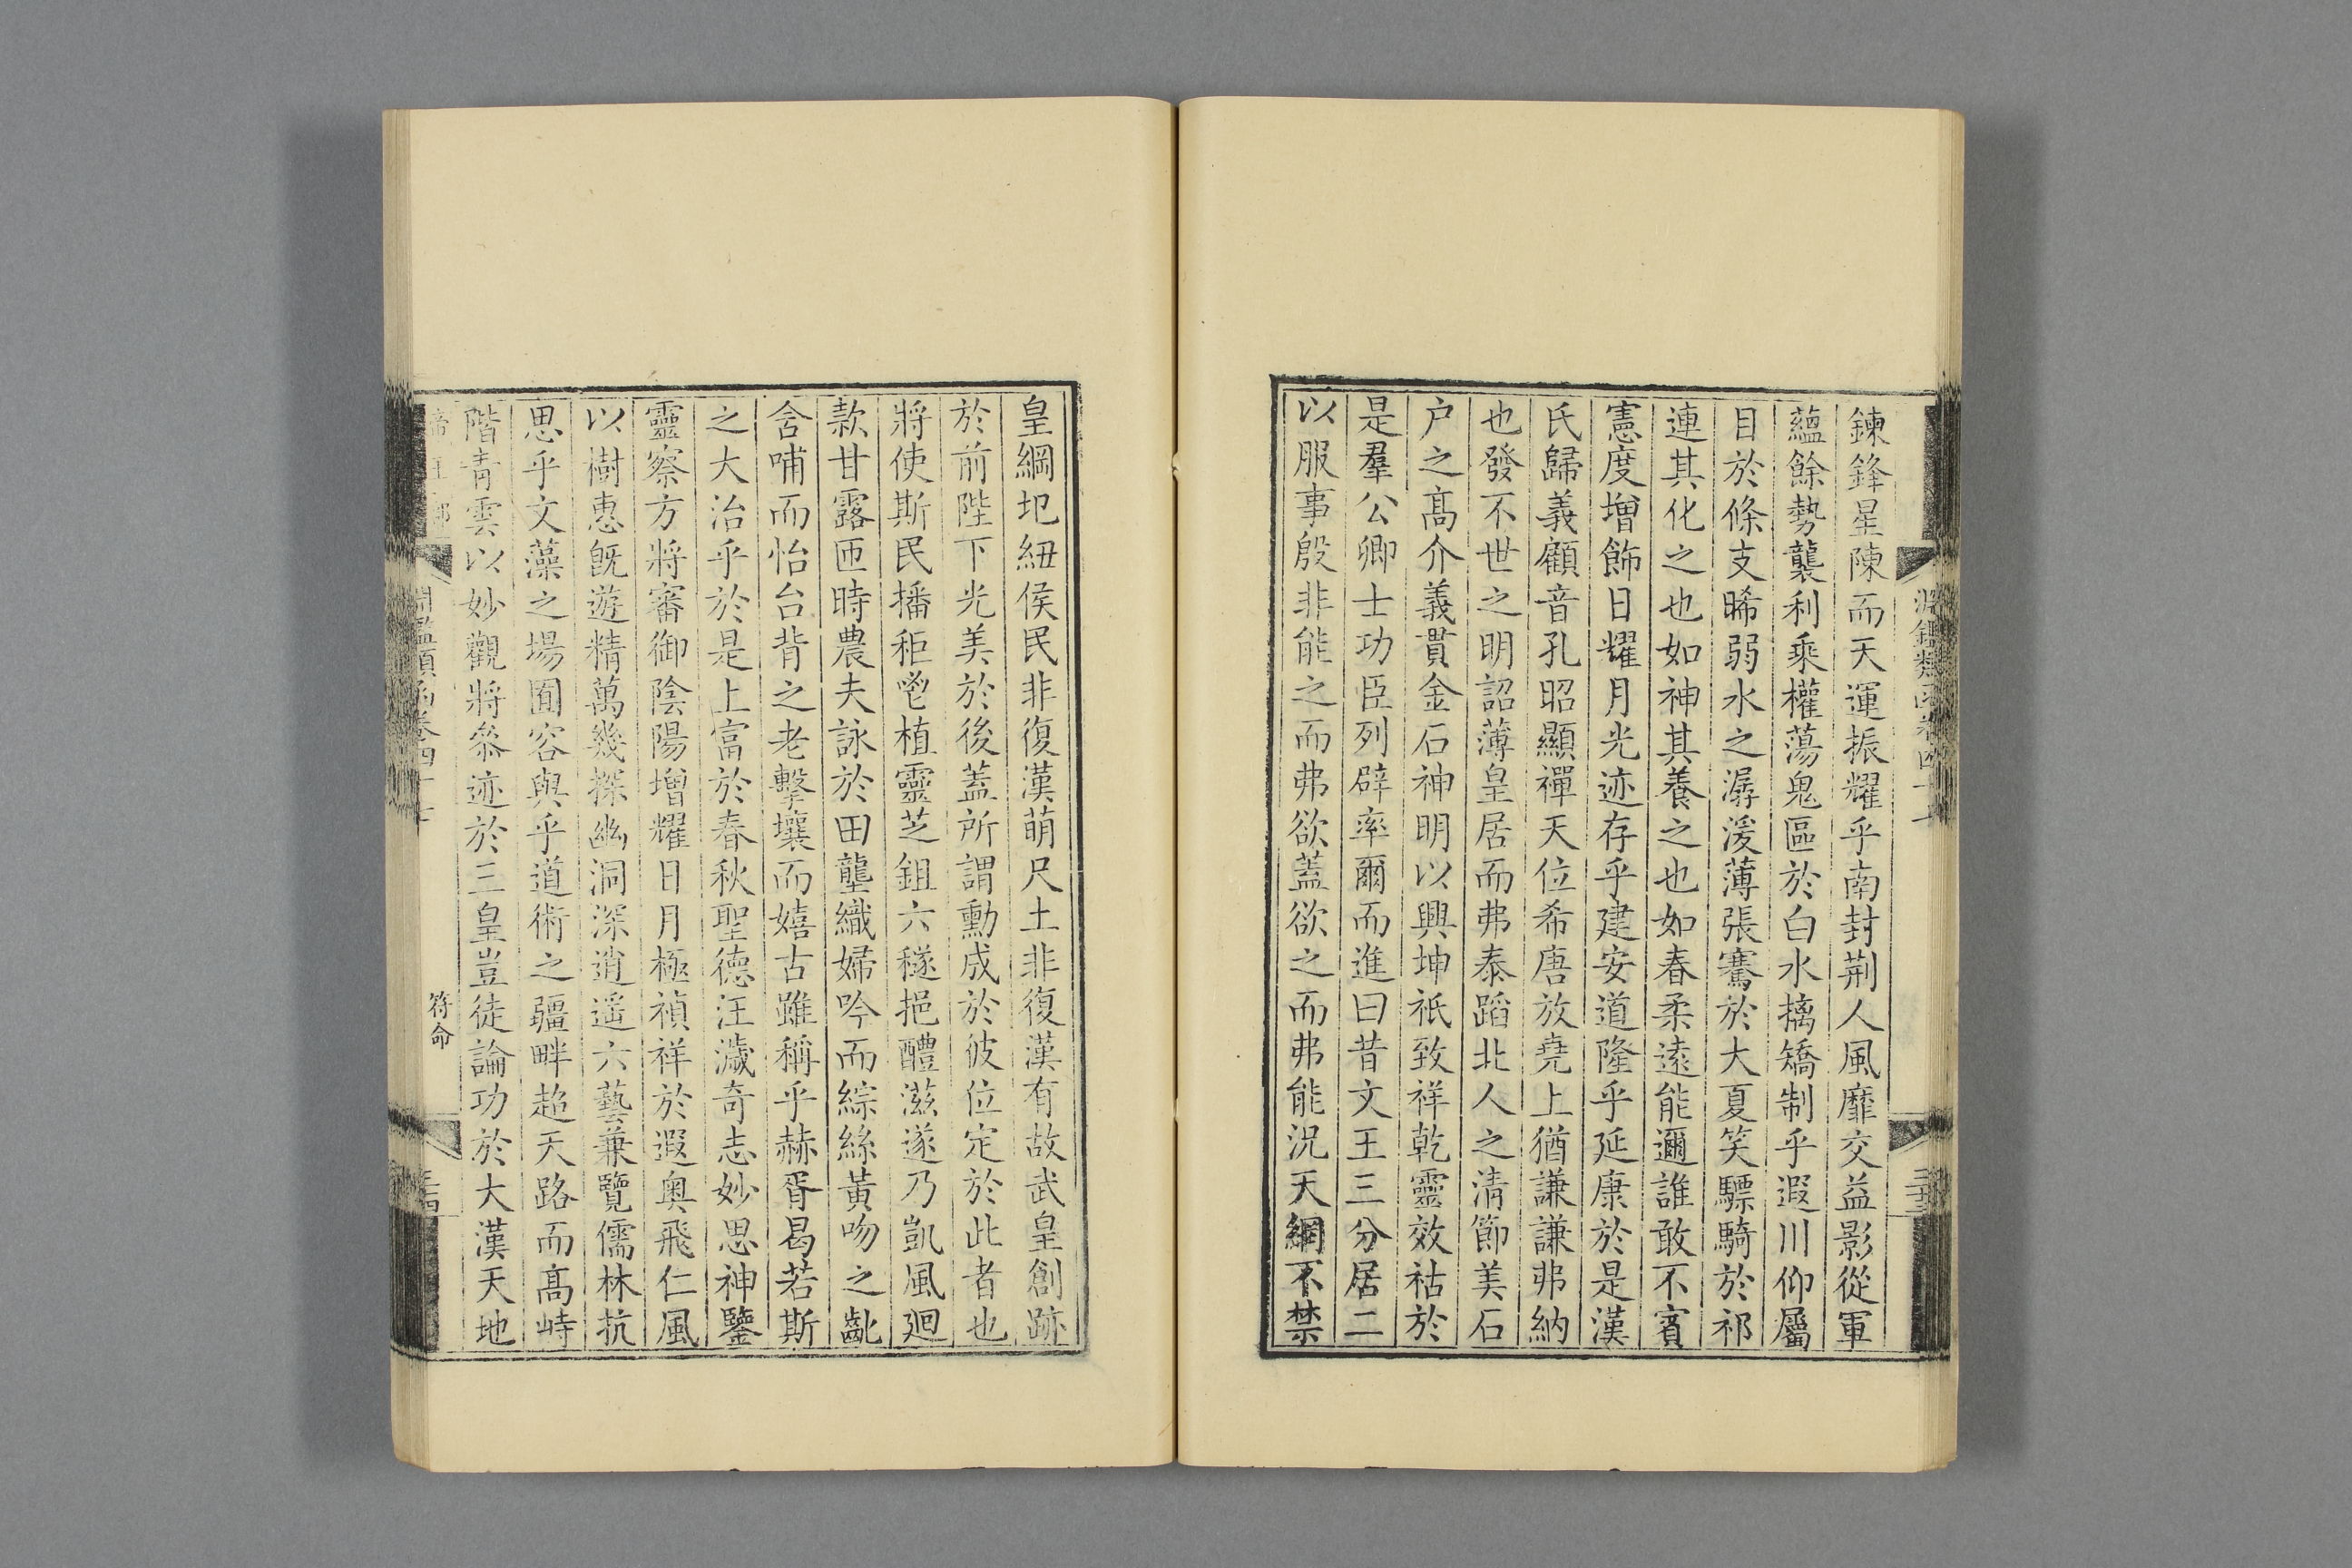 鍊鋒星陳而天運振耀乎南封荆人風靡交益影從軍
蘊餘勢襲利乘權蕩鬼區於白水擒矯制乎遐川仰屬
目於條支晞弱水之潺湲薄張騫於大夏笑驃騎於祁
連其化之也如神其養之也如春柔遠能邇誰敢不賓
憲度增飾日耀月光迹存乎建安道隆乎延康於是漢
氏歸義顧音孔昭顯禪天位希唐放堯上猶謙謙弗納
也發不世之明詔薄皇居而弗泰蹈北人之清節美石
户之髙介義貫金石神明以興坤祇致祥乾靈效祜於
是羣公卿士功臣列辟率爾而進曰昔文王三分居二
以服事殷非能之而弗欲蓋欲之而弗能況天網不禁
皇綱圯紐侯民非復漢萌尺土非復漢有故武皇創跡
於前陛下光美於後蓋所謂勳成於彼位定於此者也
將使斯民播秬鬯植靈芝鉏六穟挹醴滋遂乃凱風廻
款甘露匝時農夫詠於田壟織婦吟而綜絲黃吻之齔
含哺而怡台背之老擊壤而嬉古雖稱乎赫胥曷若斯
之大治乎於是上富於春秋聖德汪濊奇志妙思神鑒
靈察方將審御陰陽增耀日月極禎祥於遐奥飛仁風
以樹惠旣遊精萬幾探幽洞深逍遥六藝兼覽儒林抗
思乎文藻之場囿容與乎道術之疆畔超天路而髙峙
階靑雲以妙觀將叅迹於三皇豈徒論功於大漢天地
淵鑑類函卷四十
符命